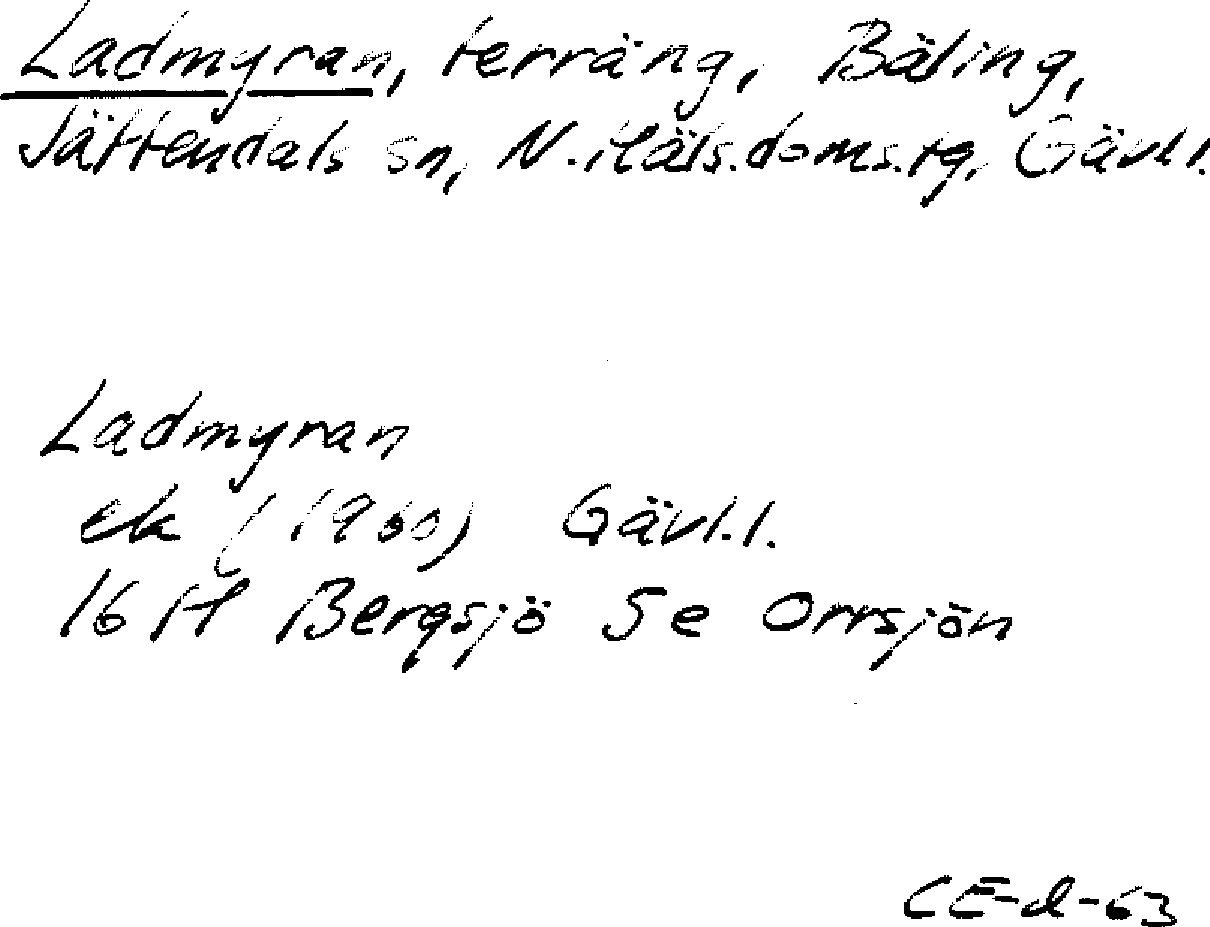 Ladmyran, terräng, Bäling,
Jättendals sn, N. Häls. doms.tg, Gävl.l.
Ladmyran
ek (1960) Gävl.l.
16 H Bergsjö 5 e Orrsjön
CE-d-63